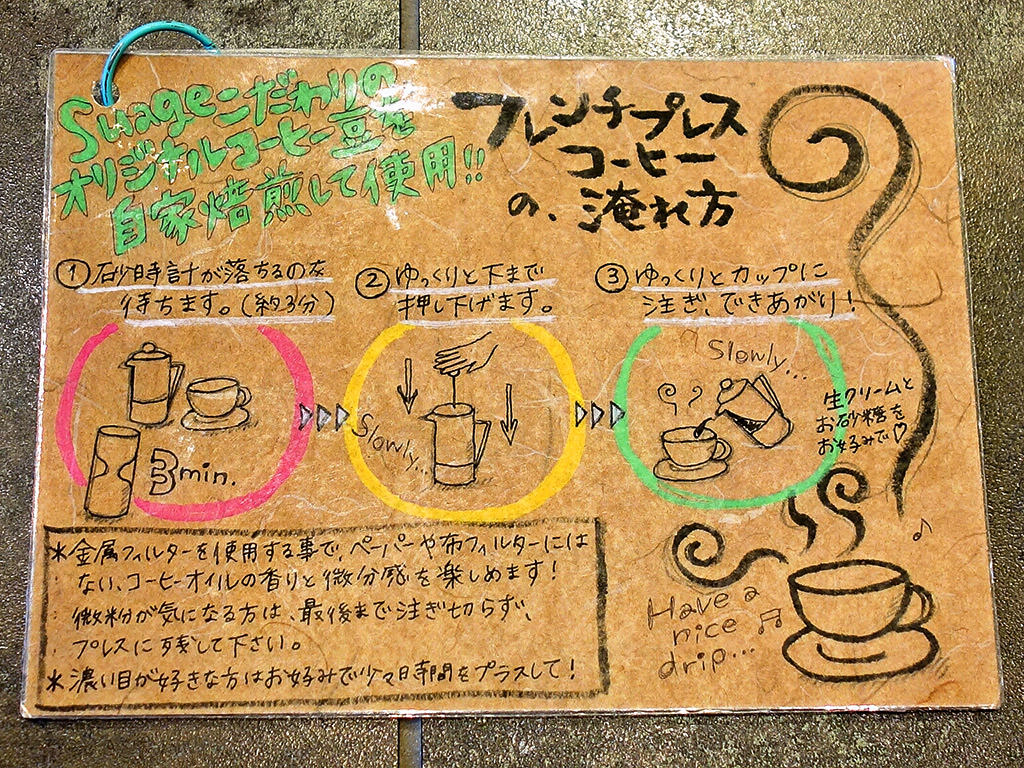 Suageこだわりの
オリジナルコーヒー豆を
自家焙煎して使用!!
フレンチプレス
コーヒー
の、淹れ方
① 砂時計が落ちるのを
待ちます。(約3分)
② ゆっくりと下まで
押し下げます。
③ ゆっくりとカップに
注ぎ、できあがり!
3min.
Slowly...
Slowly...
生クリームと
お砂糖を
お好みで♡
*金属フィルターを使用する事で、ペーパーや布フィルターには
ない、コーヒーオイルの香りと微分感を楽しめます!
微粉が気になる方は、最後まで注ぎ切らず、
プレスに残して下さい。
*濃い目が好きな方はお好みで少々時間をプラスして!
Have a
nice
drip...